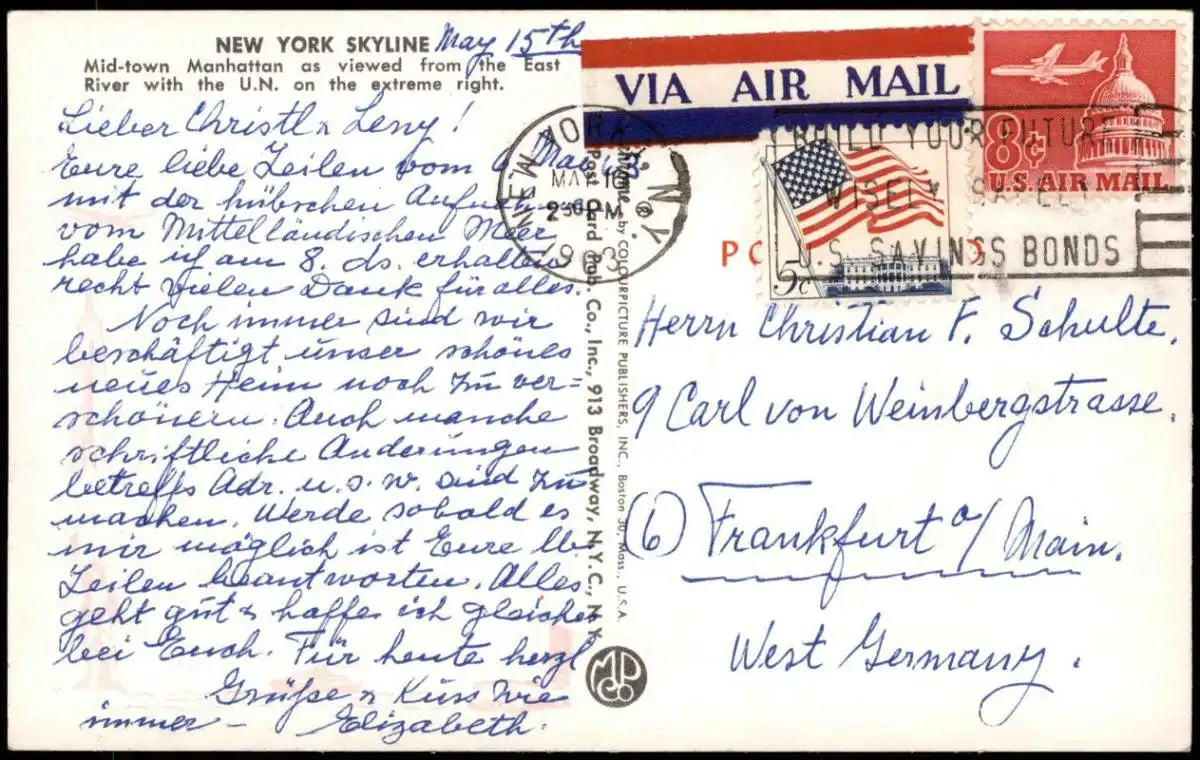 NEW YORK SKYLINE May 15th
Mid-town Manhattan as viewed from the East
River with the U.N. on the extreme right.
Lieber Christl & Leny!
Eure liebe Zeilen vom May
mit der hübschen
vom Mittelländischen Meer
habe ich am 8. ds. erhalten
recht vielen Dank für alles.
Noch immer sind wir
beschäftigt unser schönes
neues Heim noch zu ver=
schönern. Auch manche
schriftliche Änderungen
betreffs Adr. u.s.w. sind zu
machen. Werde sobald es
mir möglich ist Eure lb.
Zeilen beantworten. Alles
geht gut & hoffe ich gleiches
bei Euch. Für heute herzl
Grüße & Kuss wie
immer – Elizabeth.
by COLOURPICTURE PUBLISHERS, INC., Boston 30, Mass., U.S.A.
Post Card Pub. Co., Inc., 913 Broadway, N.Y.C., N.Y.
MPCo
VIA AIR MAIL
8¢
U.S. AIR MAIL
5c
NEW YORK, N.Y.
MAY 16
2 30 PM
BUILD YOUR FUTURE
WISELY SAFELY
U.S. SAVINGS BONDS
Herrn Christian F. Schulte.
9 Carl von Weinbergstrasse.
(6) Frankfurt a/Main.
West Germany.